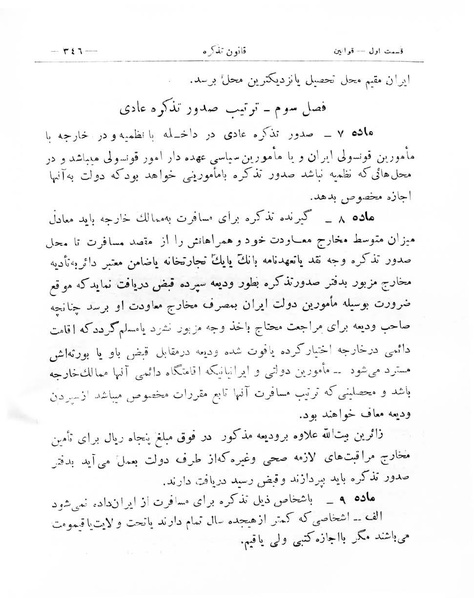 قسمت اول — قوانین قانون تذکره —٣٤٦—
ایران مقیم محل تحصیل یا نزدیکترین محل برسد.
فصل سوم - ترتیب صدور تذکره عادی
ماده ۷ - صدور تذکره عادی در داخله با نظمیه و در خارجه با
مأمورین قونسولی ایران و یا مأمورین سیاسی عهده دار امور قونسولی میباشد و در
محل‌هائی که نظمیه نباشد صدور تذکره با مأمورینی خواهد بود که دولت به آنها
اجازه مخصوص بدهد.
ماده ۸ - گیرنده تذکره برای مسافرت به ممالک خارجه باید معادل
میزان متوسط مخارج معاودت خود و همراهانش را از مقصد مسافرت تا محل
صدور تذکره وجه نقد یا تعهدنامه بانک یا یک تجارتخانه یا ضامن معتبر دائر به تأدیه
مخارج مزبور بدفتر صدور تذکره بطور ودیعه سپرده قبض دریافت نماید که موقع
ضرورت بوسیله مأمورین دولت ایران بمصرف مخارج معاودت او برسد چنانچه
صاحب ودیعه برای مراجعت محتاج باخذ وجه مزبور نشد یا مسلم گردد که اقامت
دائمی در خارجه اختیار کرده یا فوت شده ودیعه در مقابل قبض باو یا بورثه‌اش
مسترد می‌شود — مأمورین دولتی و ایرانیانیکه اقامتگاه دائمی آنها ممالک خارجه
باشد و محصلینی که ترتیب مسافرت آنها تابع مقررات مخصوص میباشد از سپردن
ودیعه معاف خواهند بود.
زائرین بیت‌الله علاوه بر ودیعه مذکور در فوق مبلغ پنجاه ریال برای تأمین
مخارج مراقبت‌های لازمه صحی و غیره که از طرف دولت بعمل می‌آید بدفتر
صدور تذکره باید بپردازند و قبض رسید دریافت دارند.
ماده ۹ - باشخاص ذیل تذکره برای مسافرت از ایران داده نمی‌شود
الف — اشخاصی که کمتر از هیجده سال تمام دارند یا تحت ولایت یا قیمومت
می‌باشند مگر با اجازه کتبی ولی یا قیم.